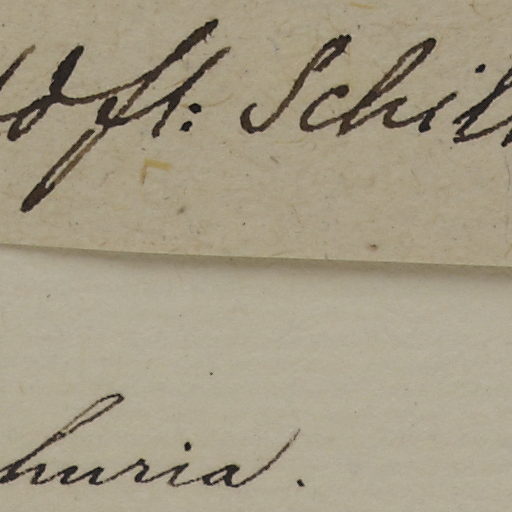 dft: Schil
huria.